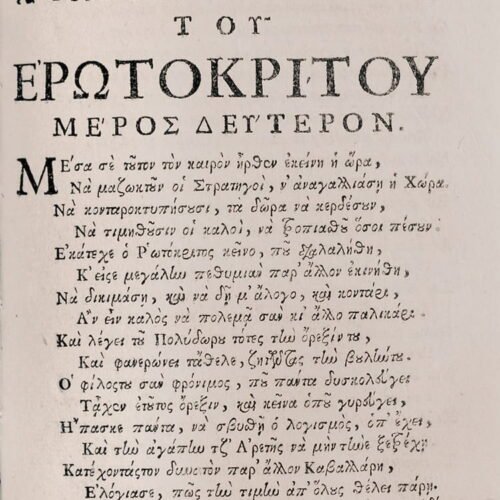 ΤΟΥ
ἘΡΩΤΟΚΡΊΤΟΥ
ΜΈΡΟΣ ΔΕΎΤΕΡΟΝ.
Μέσα σὲ τοῦτον τὸν καιρὸν ἦρθεν ἐκείνη ἡ ὥρα,
Νὰ μαζωκτοῦν οἱ Στρατηγοὶ, ν' ἀναγαλλιάσῃ ἡ Χώρα.
Νὰ κονταροκτυπήσουσι, τὰ δῶρα νὰ κερδέσουν,
Νὰ τιμηθοῦσιν οἱ καλοὶ, νὰ ξοπιαθοῦ ὅσοι πέσουν.
Ἐκάτεχε ὁ Ῥωτόκριτος κεῖνο, ποῦ διαλαλήθη,
Κ' εἰσὲ μεγάλην πεθυμιὰν παρ' ἄλλον ἐκινήθη,
Νὰ δικιμάσῃ, καὶ νὰ δῇ μ' ἄλογο, καὶ κοντάρι,
Ἂν εἶν καλὸς νὰ πολεμᾷ σαν κι ἄλλο παλικάρι.
Καὶ λέγει τοῦ Πολύδωρου τότες τὴν ὄρεξίντου,
Καὶ φανερώνει τἄθελε, ζητῶντας τὴν βουλήντου.
Ὁ φίλοστου σαν φρόνιμος, που πάντα δυσκολεύγει
Τάχεν ἐτοῦτος ὄρεξιν, καὶ κεῖνα ὁποῦ γυρεύγει,
Ἤπασκε πάντα, νὰ σβυθῇ ὁ λογισμὸς, ὁπ' ἔχει,
Καὶ τὴν ἀγάπην τζ' Ἀρετῆς νὰ μὴν τὴνε ξετρέχῃ.
Κατέχοντάςτον δυνατὸν παρ' ἄλλον Καβαλλάρη,
Ἐλόγιασε, πῶς τὴν τιμὴν ἀπ' ὅλους θέλει πάρῃ.